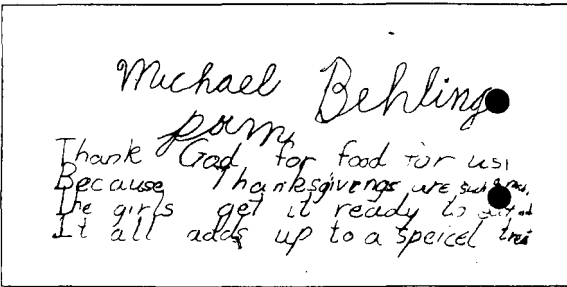 Michael Behling
poem
Thank God for food for us,
Because Thanksgivings are
The girls get it ready to
It all adds up to a speicel